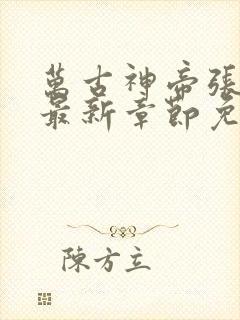 萬古神帝張
最新章節免
陳方立